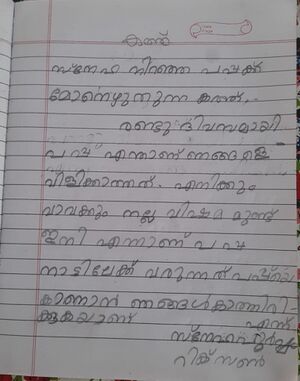 കത്ത്
സ്നേഹ നിറഞ്ഞ പപ്പക്ക്
മോനെഴുതുന്ന കത്ത്.
രണ്ടു ദിവസമായി
പപ്പ എന്താണ് ഞങ്ങളെ
വിളിക്കാത്തത്. എനിക്കും
വാവക്കും നല്ല വിഷമമുണ്ട്
ഇനി എന്നാണ് പപ്പ
നാട്ടിലേക്ക് വരുന്നത് പപ്പയെ
കാണാൻ ഞങ്ങൾ കാത്തിരി-
ക്കുകയാണ് എന്ന്
സ്നേഹപൂർവ്വം
റിക്സൺ